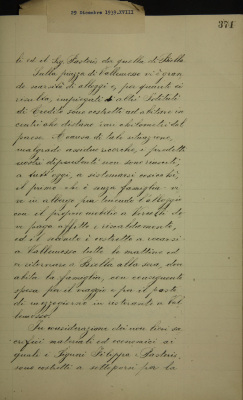 29 Dicembre 1939. XVIII
371
ti ed il Sig. Pastoris da quella di Biella.
Sulla piazza di Vallemosso vi è gran
de scarsità di alloggi e, per quanto ci
risulta, impiegati di altri Istituti
di Credito sono costretti ad abitare in
centri che distano vari chilometri dal
paese. A causa di tale situazione,
malgrado assidue ricerche, i predetti
nostri dipendenti non sono riusciti,
a tutt'oggi, a sistemarsi cosicchè,
il primo che è senza famiglia vi
ve in albergo pur tenendo l'alloggio
con il proprio mobilio a Biella do
ve paga affitto e riscaldamento,
ed il secondo è costretto a recarsi
a Vallemosso tutte le mattine ed
a ritornare a Biella alla sera, dove
abita la famiglia, con conseguente
spesa per il viaggio e per il pasto
di mezzogiorno in ristorante a Val
lemosso.
In considerazione dei non lievi sa
crifici materiali ed economici ai
quali i Signori Filippa e Pastoris,
sono costretti a sottoporsi per la